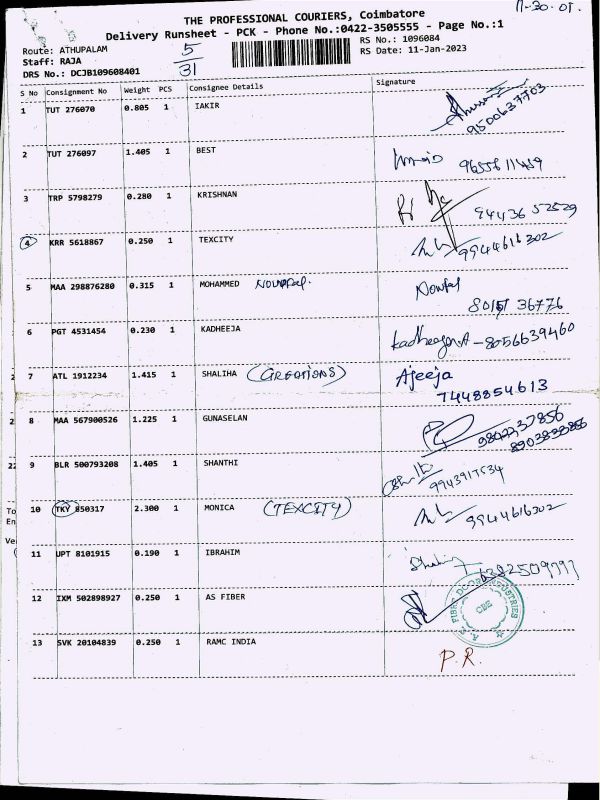 11-30.01.
THE PROFESSIONAL COURIERS, Coimbatore
Delivery Runsheet - PCK - Phone No.:0422-3505555 - Page No.:1
Route: ATHUPALAM 5 RS No.: 1096084
Staff: RAJA 31 RS Date: 11-Jan-2023
DRS No.: DCJB109608401
S No Consignment No Weight PCS Consignee Details Signature
1 TUT 276070 0.805 1 IAKIR 9500637703
2 TUT 276097 1.405 1 BEST
3 TRP 5798279 0.280 1 KRISHNAN 94436 52529
4 KRR 5618867 0.250 1 TEXCITY 9944616302
5 MAA 298876280 0.315 1 MOHAMMED Nowfal
80157 36776
6 PGT 4531454 0.230 1 KADHEEJA Kadheeja.A - 8056639460
7 ATL 1912234 1.415 1 SHALIHA (CREATIONS) Ajeeja
7448854613
8 MAA 567900526 1.225 1 GUNASELAN 9842237856
8903838856
9 BLR 500793208 1.405 1 SHANTHI 9943917534
10 TKY 850317 2.300 1 MONICA (TEXCITY) 9944616302
11 UPT 8101915 0.190 1 IBRAHIM
12 IXM 502898927 0.250 1 AS FIBER
CBE
13 SVK 20104839 0.250 1 RAMC INDIA P.R.